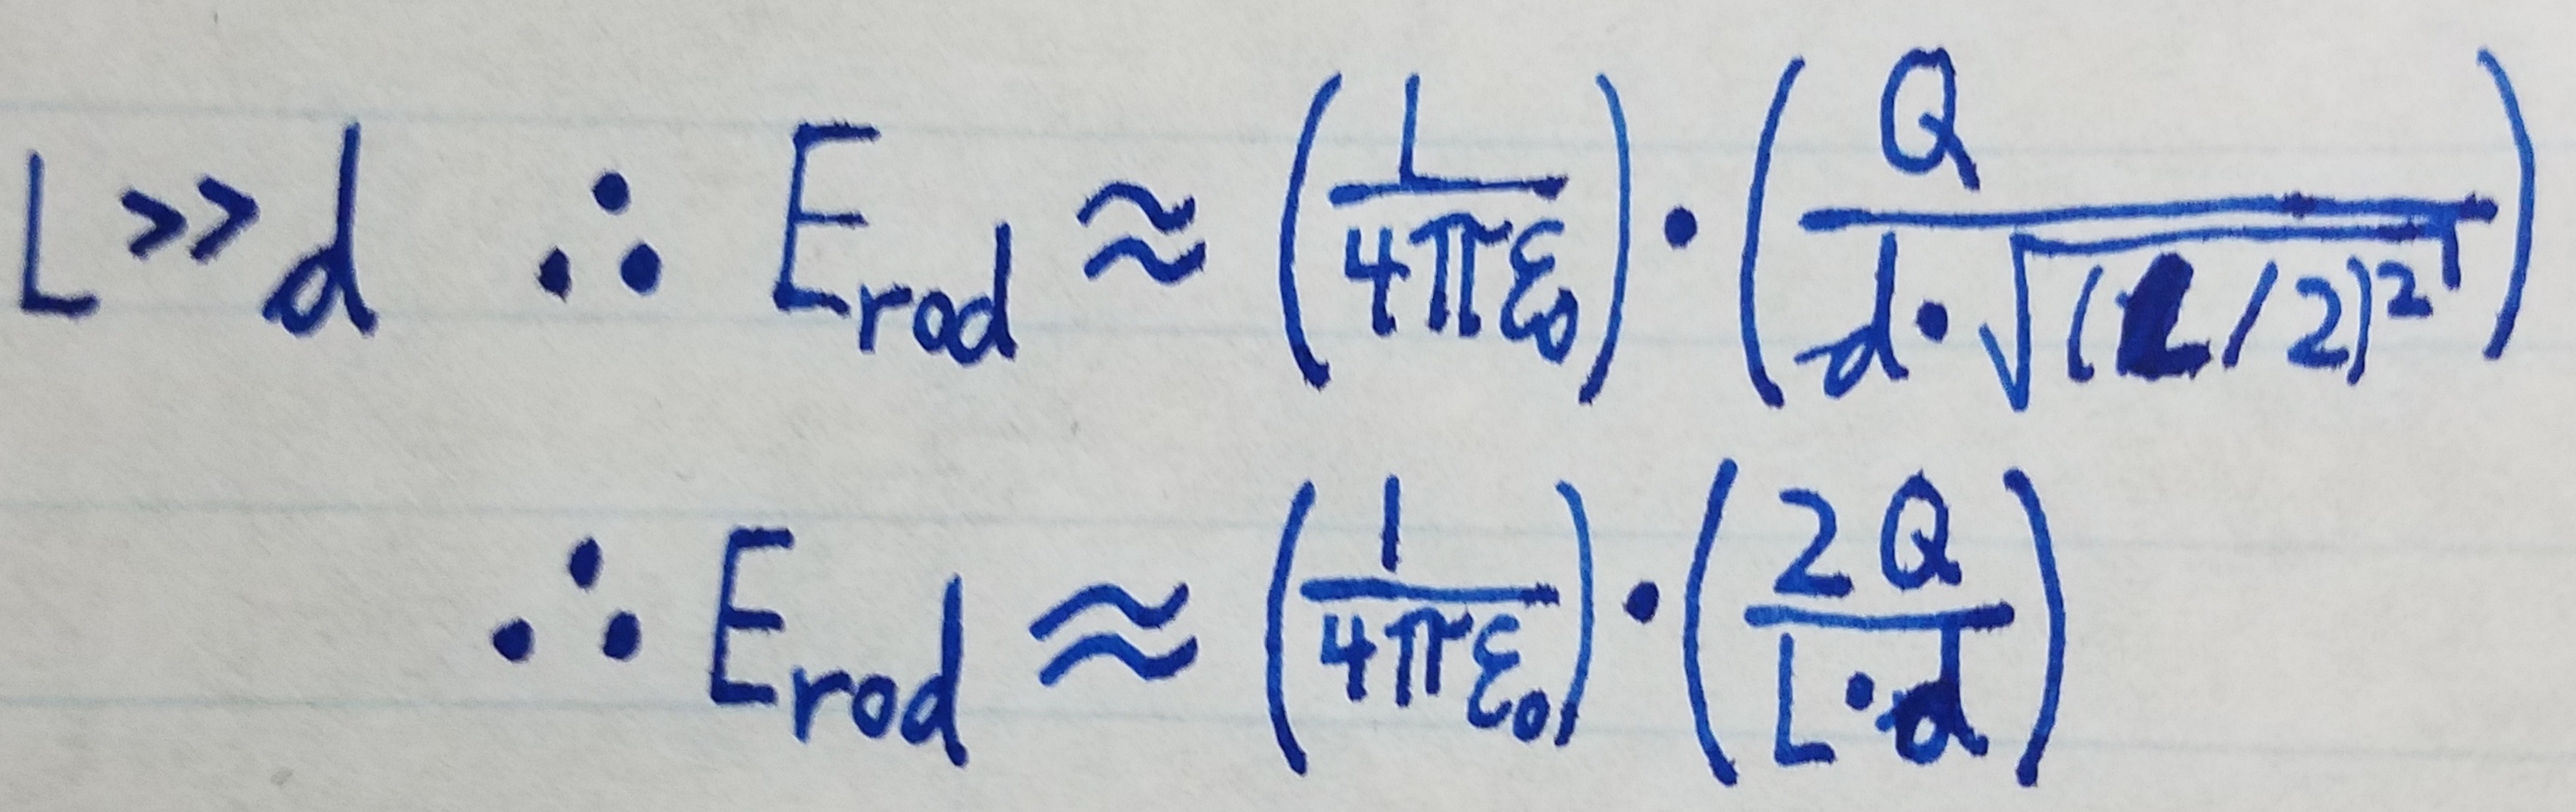 L >> d ∴ E_rod ≈ (1/4πε₀) · (Q/(d · √((L/2)²)))
∴ E_rod ≈ (1/4πε₀) · (2Q/(L · d))